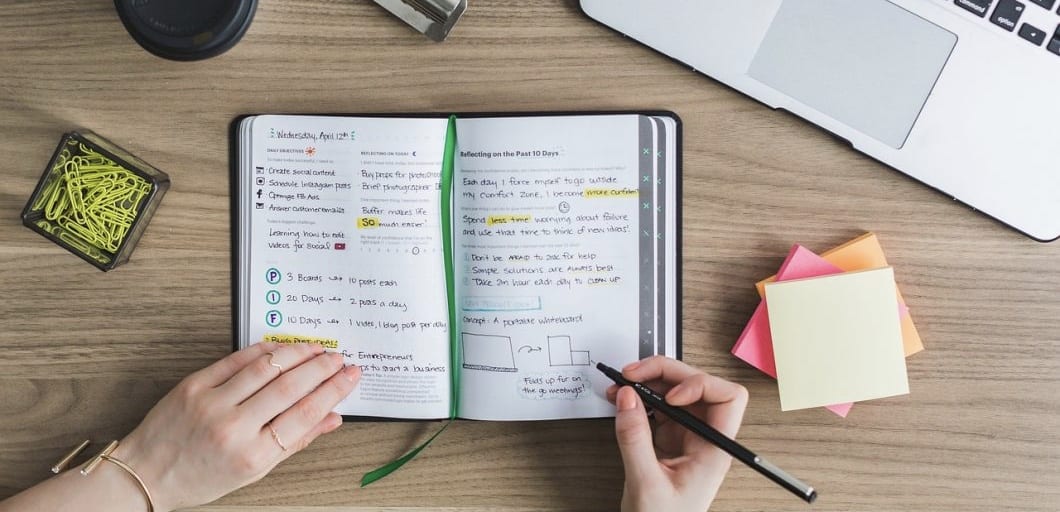 Wednesday, April 12th
DAILY OBJECTIVES
Create social content
Schedule Instagram posts
Optimize FB Ads
Answer customer emails
Learning how to edit
videos for social
REFLECTING ON TODAY
Buy props for photoshoot
Brief photographer
Buffer makes life
SO much easier!
P 3 Boards → 10 posts each
I 20 Days → 2 posts a day
F 10 Days → 1 video, 1 blog post per day
for Entrepreneurs
to start a business
Reflecting on the Past 10 Days
Each day I force myself to go outside
my comfort zone, I become more confident
Spend less time worrying about failure
and use that time to think of new ideas!
1. Don't be AFRAID to ask for help
2. Simple solutions are ALWAYS best
3. Take 2m hour each day to CLEAN UP
Concept: A portable whiteboard
Folds up for on
the go meetings!
command
option